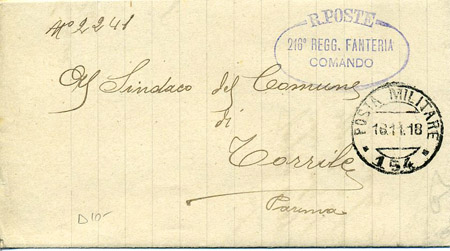 N° 2241
R. POSTE
216° REGG. FANTERIA
COMANDO
Al Sindaco del Comune
di
Torrile
Parma
POSTA MILITARE
16.11.18
154